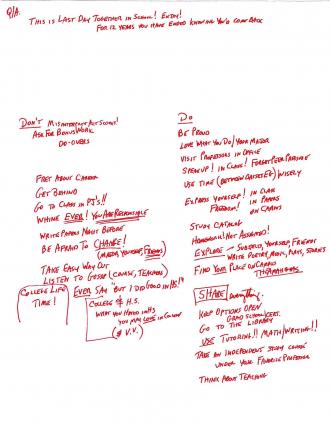 Q/A.
THIS IS LAST DAY TOGETHER IN SCHOOL! ENJOY!
FOR 12 YEARS YOU HAVE ENDED KNOWING YOU'D COME BACK
DON'T MISINTERPRET ACT SCORES!
ASK FOR BONUS WORK
DO-OVERS
FRET ABOUT CAREER
GET BEHIND
GO TO CLASS IN PJ'S!!
WHINE EVER! YOU ARE RESPONSIBLE
WRITE PAPERS NIGHT BEFORE
BE AFRAID TO CHANGE!
(MAJOR, YOURSELF, FRIENDS)
TAKE EASY WAY OUT
LISTEN TO GOSSIP (COURSE, TEACHERS)
EVER SAY "BUT I DID GOOD IN HS!"
COLLEGE LIFE
TIME!
COLLEGE ≠ H.S.
WHAT YOU HATED IN HS
YOU MAY LOVE IN COLLEGE
(& V.V.)
DO
BE PROUD
LOVE WHAT YOU DO/YOUR MAJOR
VISIT PROFESSORS IN OFFICE
SPEAK UP! IN CLASS! FORGET PEER PRESSURE
USE TIME (BETWEEN CLASSES) WISELY
EXPRESS YOURSELF! IN CLASS
FREEDOM! IN PAPERS
ON EXAMS
STUDY CATALOG
HOMEWORK! NOT ASSIGNED!
EXPLORE - SUBJECTS, YOURSELF, FRIENDS
WRITE POETRY, MUSIC, PLAYS, STORIES
FIND YOUR PLACE ON CAMPUS
SHARE everything.
KEEP OPTIONS OPEN
GRAD SCHOOL/CERT.
GO TO THE LIBRARY
USE TUTORING!! MATH/WRITING!!
TAKE AN INDEPENDENT STUDY COURSE
UNDER YOUR FAVORITE PROFESSOR
THINK ABOUT TEACHING